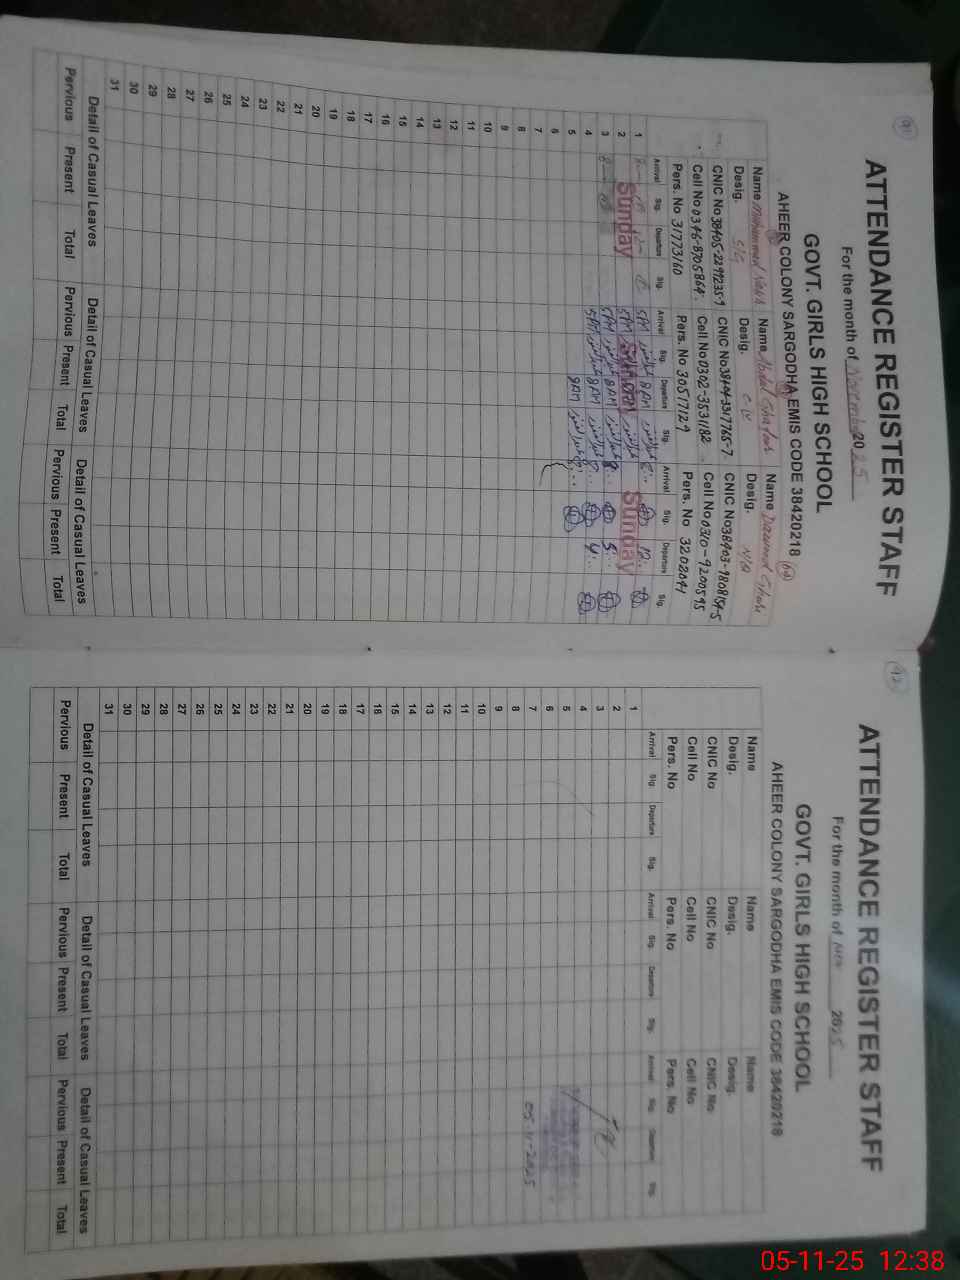 91
ATTENDANCE REGISTER STAFF
For the month of November 2025
GOVT. GIRLS HIGH SCHOOL
AHEER COLONY SARGODHA EMIS CODE 38420218
Name Muhammad Name Abdul Ghafoor Name Dawood
Desig. Desig. Desig. N/Q
CNIC No 38405-2299235-9 CNIC No 38404-3317765-7 CNIC No 38403-9808154-5
Cell No 0346-8705864 Cell No 0302-3531182 Cell No 0310-9200595
Pers. No 31773160 Pers. No 30517129 Pers. No 32020491
Arrival Sig. Departure Sig. Arrival Sig. Departure Sig. Arrival Sig. Departure Sig.
1 5AM عبدالغفور 8AM عبدالغفور 8:.. 12:..
2 Sunday 5AM Sunday عبدالغفور Sunday
3 5AM عبدالغفور 8AM عبدالغفور 8:.. 5:..
4 5AM عبدالغفور 8AM عبدالغفور 8:.. 4:..
5 8AM عبدالغفور 8:..
6
7
8
9
10
11
12
13
14
15
16
17
18
19
20
21
22
23
24
25
26
27
28
29
30
31
Detail of Casual Leaves Detail of Casual Leaves Detail of Casual Leaves
Pervious Present Total Pervious Present Total Pervious Present Total
92
ATTENDANCE REGISTER STAFF
For the month of Nov 2025
GOVT. GIRLS HIGH SCHOOL
AHEER COLONY SARGODHA EMIS CODE 38420218
Name Name Name
Desig. Desig. Desig.
CNIC No CNIC No CNIC No
Cell No Cell No Cell No
Pers. No Pers. No Pers. No
Arrival Sig. Departure Sig. Arrival Sig. Departure Sig. Arrival Sig. Departure Sig.
1
2
3
4
5
6
7 05-11-2025
8
9
10
11
12
13
14
15
16
17
18
19
20
21
22
23
24
25
26
27
28
29
30
31
Detail of Casual Leaves Detail of Casual Leaves Detail of Casual Leaves
Pervious Present Total Pervious Present Total Pervious Present Total
05-11-25 12:38